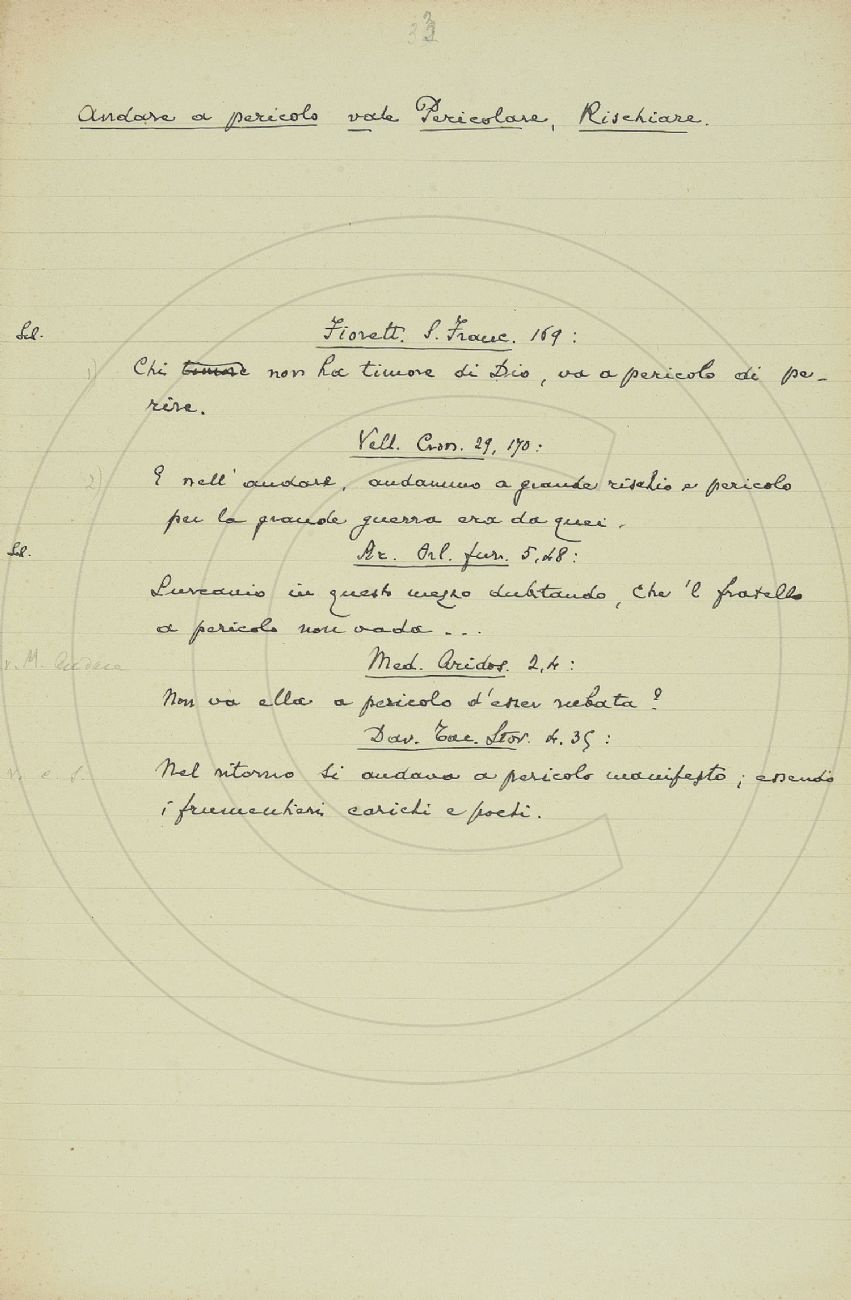 33
Andare a pericolo vale Pericolare, Rischiare.
Sel.
Fiorett. S. Franc. 169:
1) Chi timore non ha timore di Dio, va a pericolo di pe-
rire.
Vell. Cron. 29, 170:
2) E nell'andare, andammo a grande rischio e pericolo
per la grande guerra era da quei.
Sel.
Ar. Orl. fur. 5, 48:
Lurcanio in questo mezzo dubitando, che 'l fratello
a pericolo non vada...
Med. Aridos. 2, 4:
v. M.
Non va ella a pericolo d'esser rubata?
Dav. Tac. Stor. 4. 35:
v. c. s.
Nel ritorno si andava a pericolo manifesto; essendo
i frumentieri carichi e pochi.